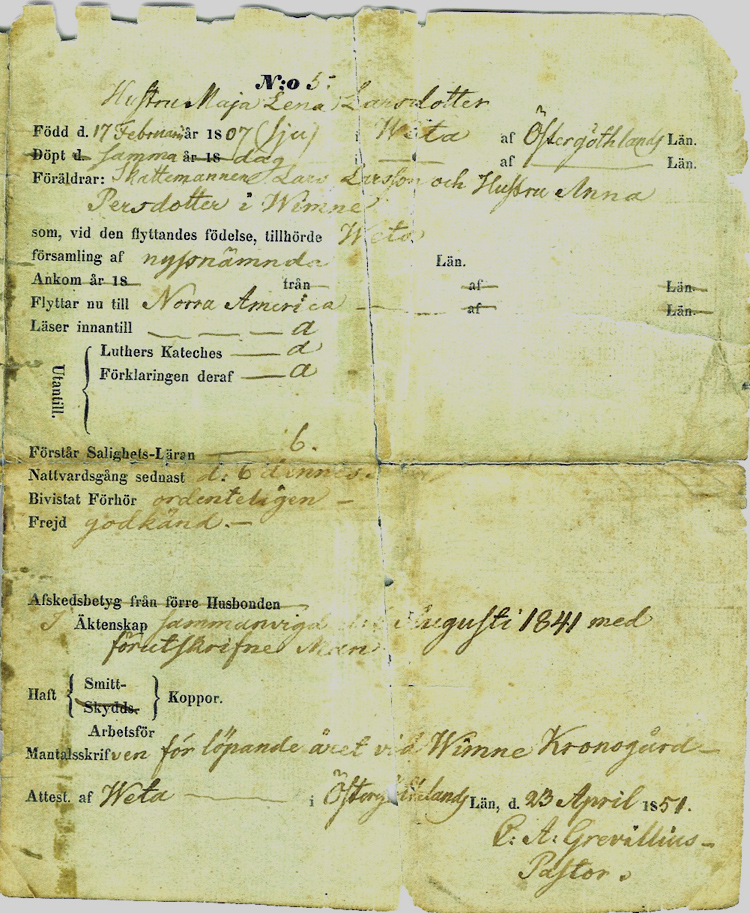 N:o 5.
Hustru Maja Lena Larsdotter
Född d. 17 Februari år 1807 (sju) i Weta af Östergöthlands Län.
Döpt d. samma år 18 dag af Län.
Föräldrar: Skattemannen Lars Larsson och Hustru Anna
Persdotter i Wimne
som, vid den flyttandes födelse, tillhörde Weta
församling af nyssnämnda Län.
Ankom år 18 från af Län.
Flyttar nu till Norra America — af Län.
Läser innantill — — — a
Utantill.
Luthers Kateches — a
Förklaringen deraf — a
Förstår Salighets-Läran — b.
Nattvardsgång sednast d. 6 dennes.
Bivistat Förhör ordenteligen —
Frejd godkänd. —
Afskedsbetyg från förre Husbonden
I Äktenskap sammanvigd Augusti 1841 med
förutskrifne Man
Haft Smitt- Skydds- Koppor.
Arbetsför
Mantalsskrifven för löpande året vid Wimne Kronogård —
Attest. af Weta — i Östergöthlands Län, d. 23 April 1851.
C: A: Grevillius —
Pastor.